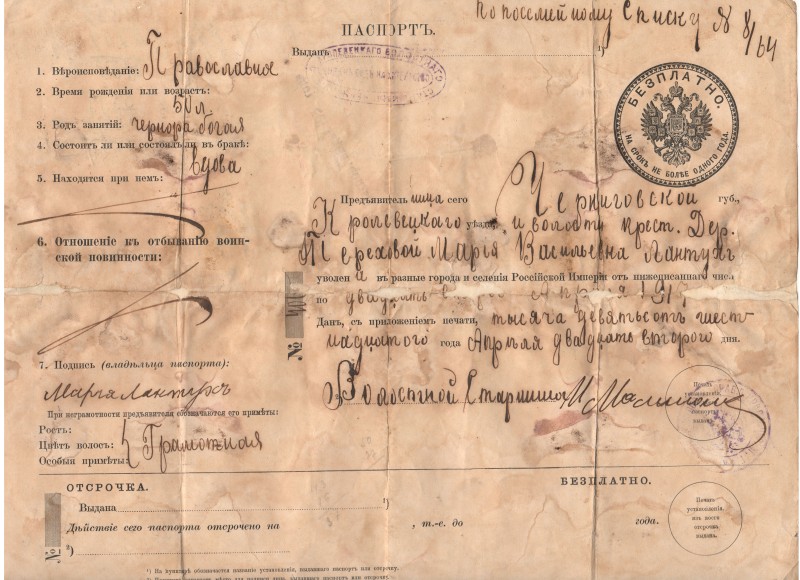 По посемейному Списку № 8/64
ПАСПОРТЪ.
Выданъ 1)
БЕЗПЛАТНО.
НА СРОКЪ НЕ БОЛѢЕ ОДНОГО ГОДА.
1. Вѣроисповѣданіе: Православная
2. Время рожденія или возрастъ:
50 л.
3. Родъ занятій: чернорабочая
4. Состоитъ ли или состоялъ ли въ бракѣ:
вдова
5. Находятся при немъ:
6. Отношеніе къ отбыванію воин-
ской повинности:
Предъявительница сего Черниговской губ.,
Кролевецкаго уѣзда, и волости крест. Дер.
Тереховой Марья Васильевна Лантухъ
уволена въ разные города и селенія Россійской Имперіи отъ нижеписаннаго числа
по двадцать Апрѣля 1917
Данъ, съ приложеніемъ печати, тысяча девятьсотъ шест-
надцатого года Апрѣля двадцать второго дня.
№ 404
Волостной Старшина
Печать установленія, паспортъ выдавш.
7. Подпись (владѣльца паспорта):
Марья Лантухъ
При неграмотности предъявителя обозначаются его примѣты:
Ростъ:
Цвѣтъ волосъ: Грамотная
Особыя примѣты:
ОТСРОЧКА.
БЕЗПЛАТНО.
Выдана 1)
Дѣйствіе сего паспорта отсрочено на , т.-е. до года.
№ 2)
Печать
установленія,
изъ коего
отсрочка
выдана.
1) На пунктирѣ обозначается названіе установленія, выдавшаго паспортъ или отсрочку.